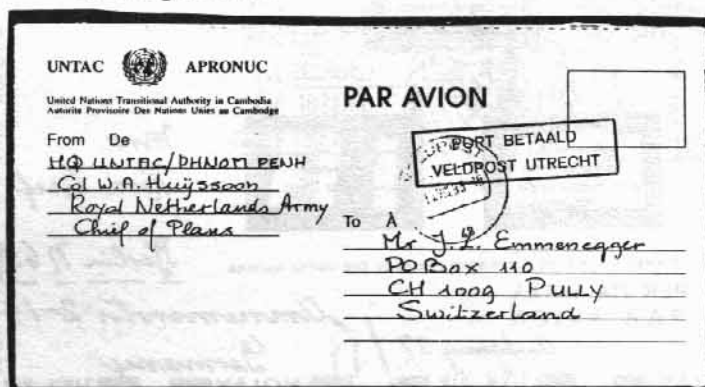 UNTAC APRONUC
United Nations Transitional Authority in Cambodia
Autorite Provisoire Des Nations Unies au Cambodge
From De
HQ UNTAC/PHNOM PENH
Col W.A. Huijssoon
Royal Netherlands Army
Chief of Plans
PAR AVION
PORT BETAALD
VELDPOST UTRECHT
To A
Mr J.L. Emmenegger
PO Box 110
CH 1009 PULLY
Switzerland